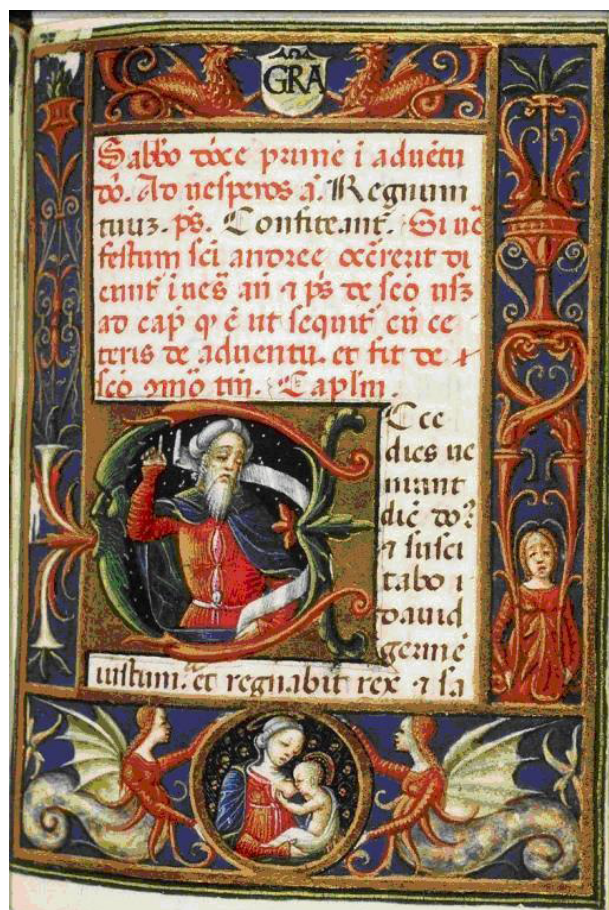 GRA
Sabbō dn̄ce prime ī aduētu
dō. Ad uesperos a. Regnum
tuuz. ps. Confiteant̄. Si uē
festum sci andree occ̄rerit di
cunt̄ ī ues̄ an̄ ⁊ ps de sc̄o usz
ad cap̄ q̄ ē ut sequit̄ en̄ ce
teris de aduentu. et fit de
sc̄o ↄmō tm̄. Caplm̄.
Ecce
dies ue
niunt
dic̄ do
⁊ susci
tabo i
dauid
germē
iustum. et regnabit rex ⁊ sa